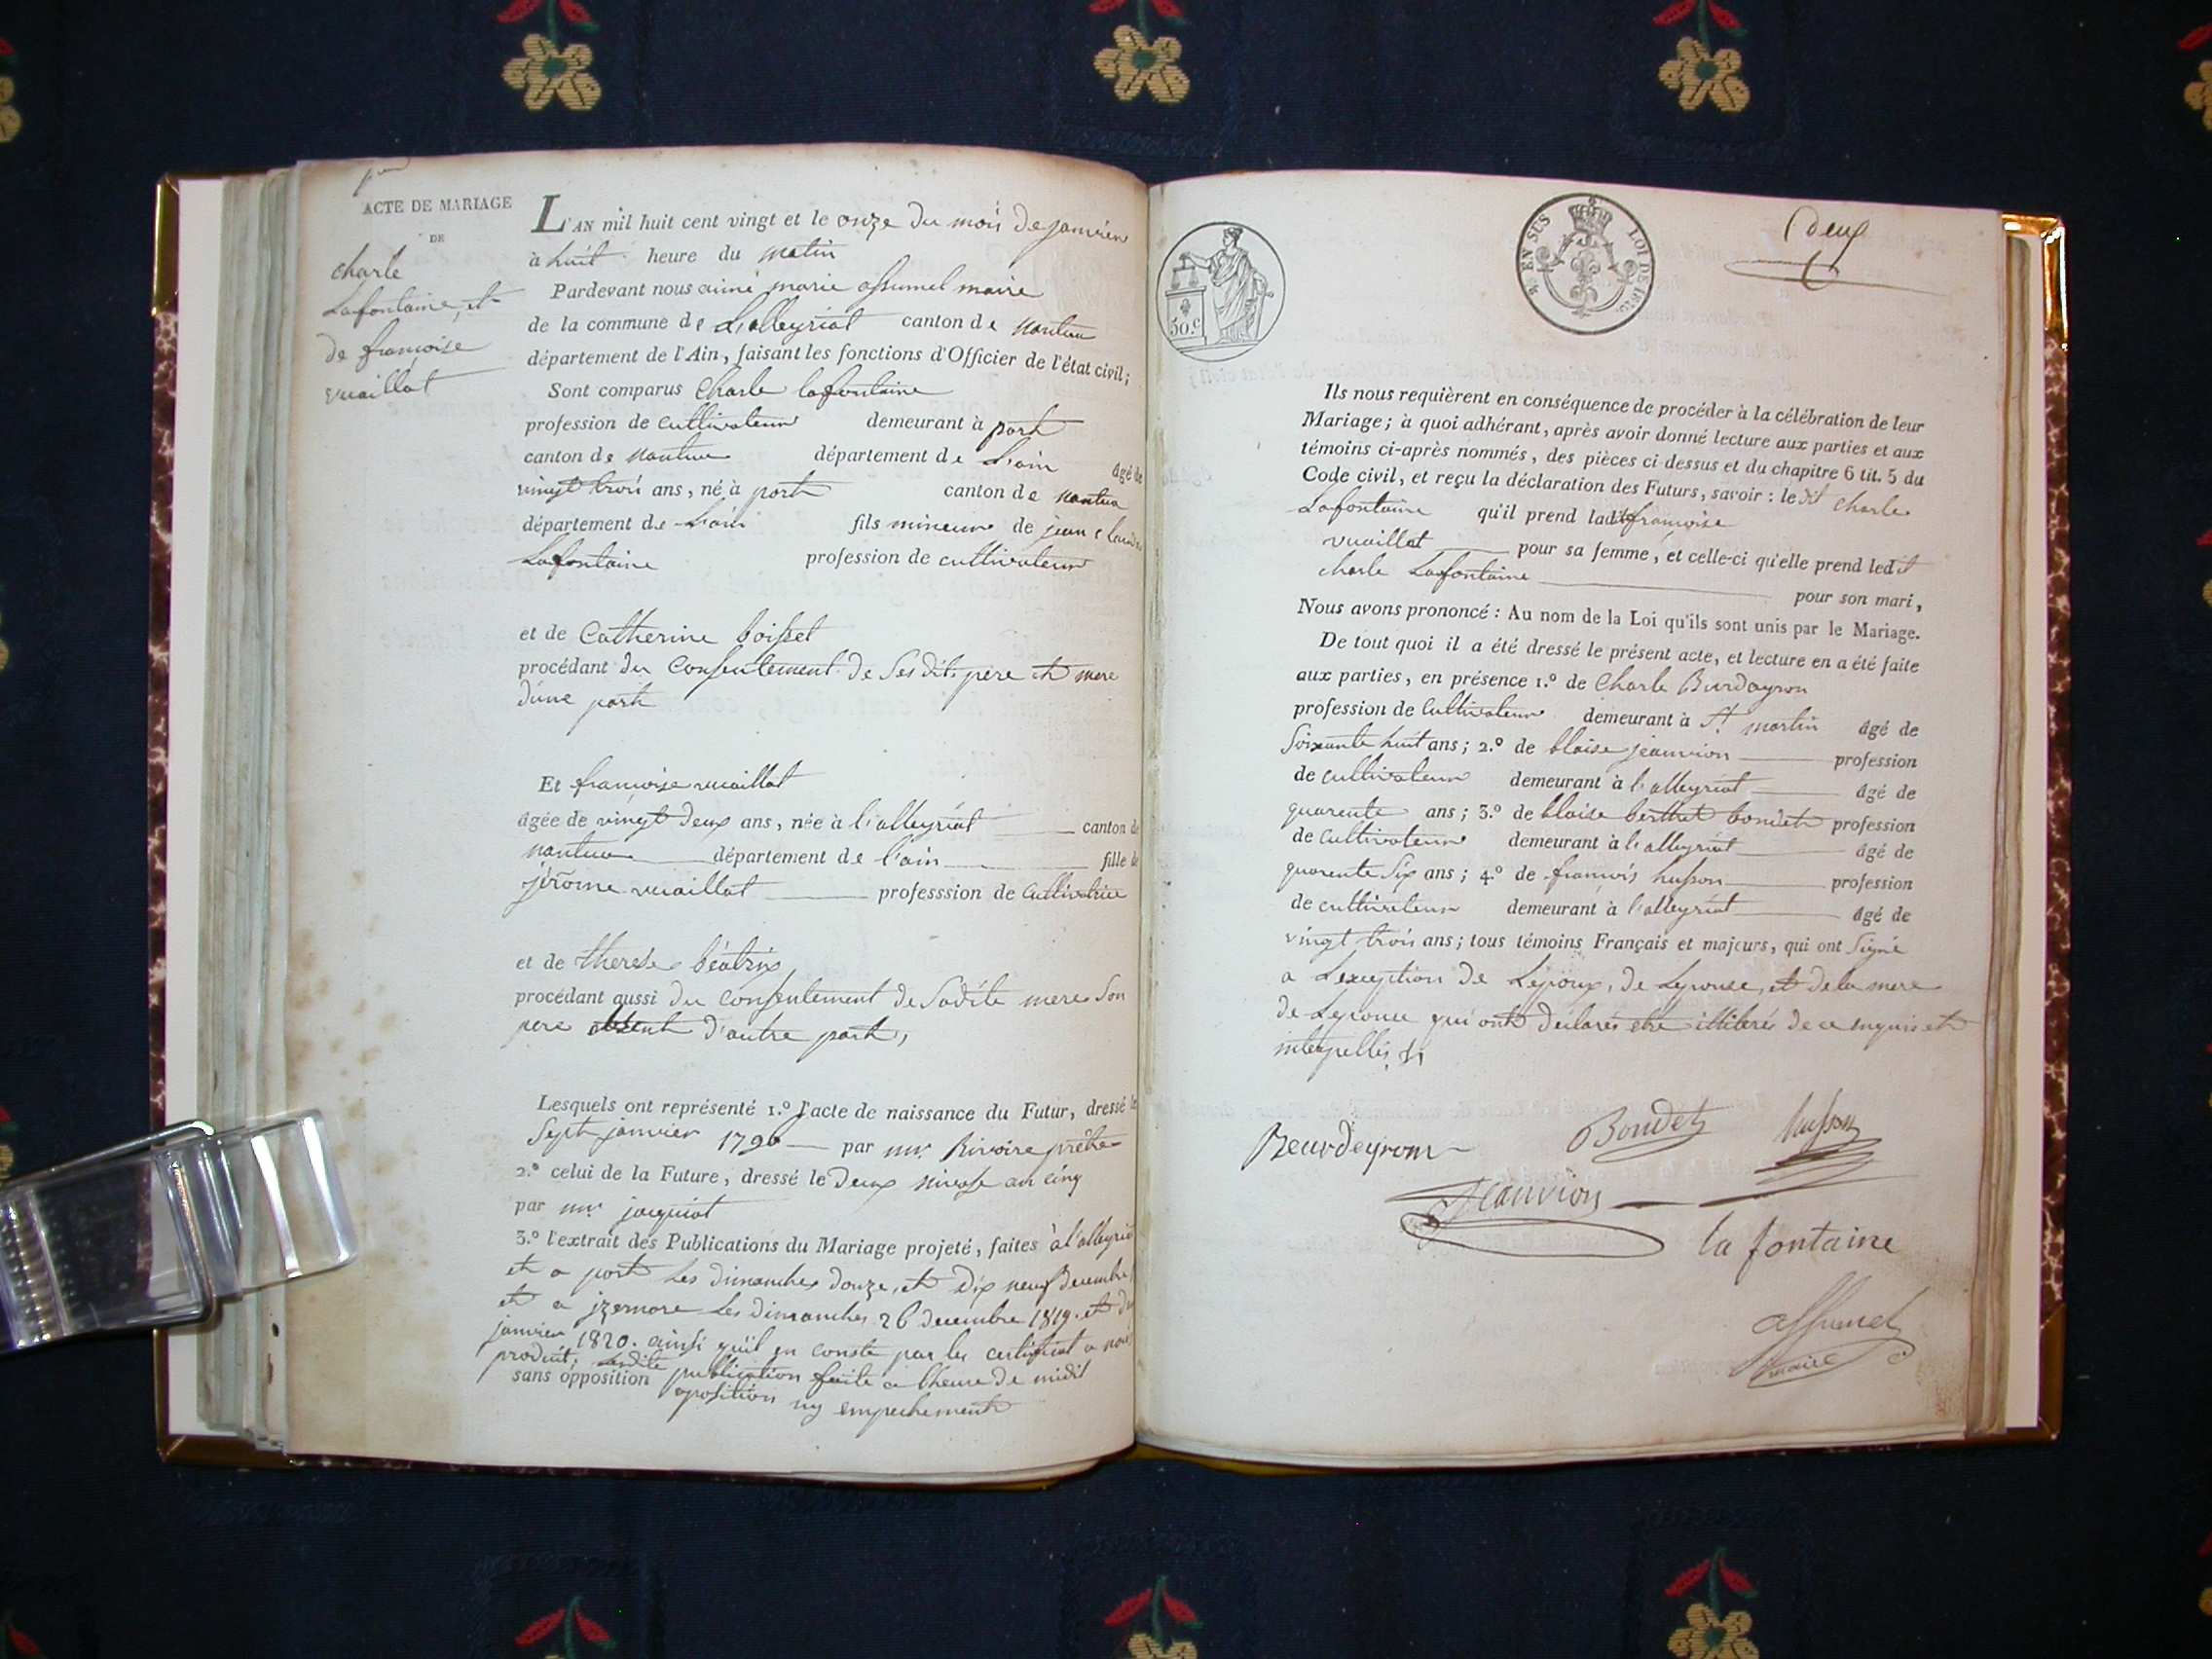 ACTE DE MARIAGE
DE
charle
Lafontaine, et
de françoise
vuaillat
L'AN mil huit cent vingt et le onze du mois de janvier
à huit heure du matin
Pardevant nous aimé marie assumel maire
de la commune de L'alleyriat canton de nantua
département de l'Ain, faisant les fonctions d'Officier de l'état civil;
Sont comparus Charle lafontaine
profession de cultivateur demeurant à port
canton de nantua département de L'ain âgé de
vingt trois ans, né à port canton de nantua
département de L'ain fils mineur de jean claude
Lafontaine profession de cultivateur
et de Catherine boissel
procédant du Consentement de Ses dits pere et mere
d'une part
Et françoise vuaillat
âgée de vingt deux ans, née à l'alleyriat canton de
nantua département de l'ain fille de
jérome vuaillat professsion de Cultivatrice
et de therese béatrix
procédant aussi du consentement de Sadite mere Son
pere absent d'autre part,
Lesquels ont représenté 1.º l'acte de naissance du Futur, dressé le
Sept janvier 1796 par mr. Rivoire prêtre
2.º celui de la Future, dressé le deux nivose an cinq
par mr. jacquiot
3.º l'extrait des Publications du Mariage projeté, faites à l'alleyriat
et a port Les dimanches douze, et dix neuf Decembre
et a jzernore Les dimanches 26 decembre 1819. et deux
janvier 1820. ainsi qu'il en conste par les certificat a nous
produit; Ladite publication faite a l'heure de midit
sans opposition
oposition ny empechement
30.c
EN SUS
LOI DE 1816
deux
Ils nous requièrent en conséquence de procéder à la célébration de leur
Mariage; à quoi adhérant, après avoir donné lecture aux parties et aux
témoins ci-après nommés, des pièces ci dessus et du chapitre 6 tit. 5 du
Code civil, et reçu la déclaration des Futurs, savoir : le dit charle
Lafontaine qu'il prend ladite françoise
vuaillat pour sa femme, et celle-ci qu'elle prend ledit
charle Lafontaine
pour son mari,
Nous avons prononcé : Au nom de la Loi qu'ils sont unis par le Mariage.
De tout quoi il a été dressé le présent acte, et lecture en a été faite
aux parties, en présence 1.º de Charle Burdeyron
profession de Cultivateur demeurant à St martin âgé de
Soixante huit ans; 2.º de blaise jeanvion profession
de cultivateur demeurant à l'alleyriat âgé de
quarente ans; 3.º de blaise berthet bondet profession
de cultivateur demeurant à l'alleyriat âgé de
quarente Six ans; 4.º de françois husson profession
de cultivateur demeurant à l'alleyriat âgé de
vingt trois ans; tous témoins Français et majeurs, qui ont Signé
a Lexeption de Lepoux, de Lepouse, et de la mere
de Lepouse qui ont déclarés etre illiterés de ce enquis et
interpellés
Beurdeyron
Bondet
husson
Jeanvion
la fontaine
assumel
maire